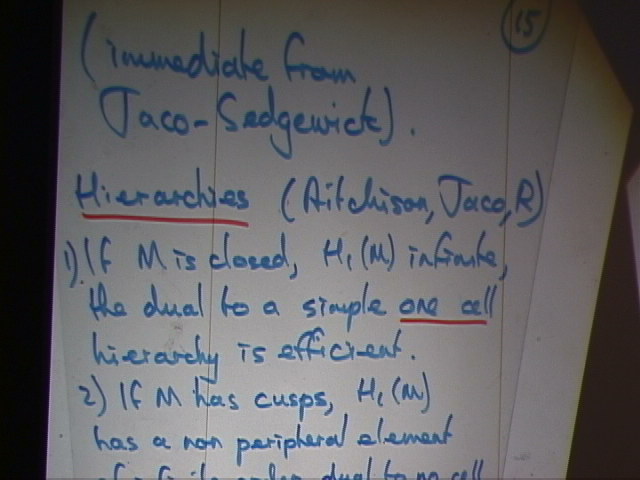 15
(immediate from
Jaco-Sedgewick).
Hierarchies (Aitchison, Jaco, R)
1) If M is closed, H₁(M) infinite,
the dual to a simple one cell
hierarchy is efficient.
2) If M has cusps, H₁(M)
has a non peripheral element
of infinite order, dual to no cell